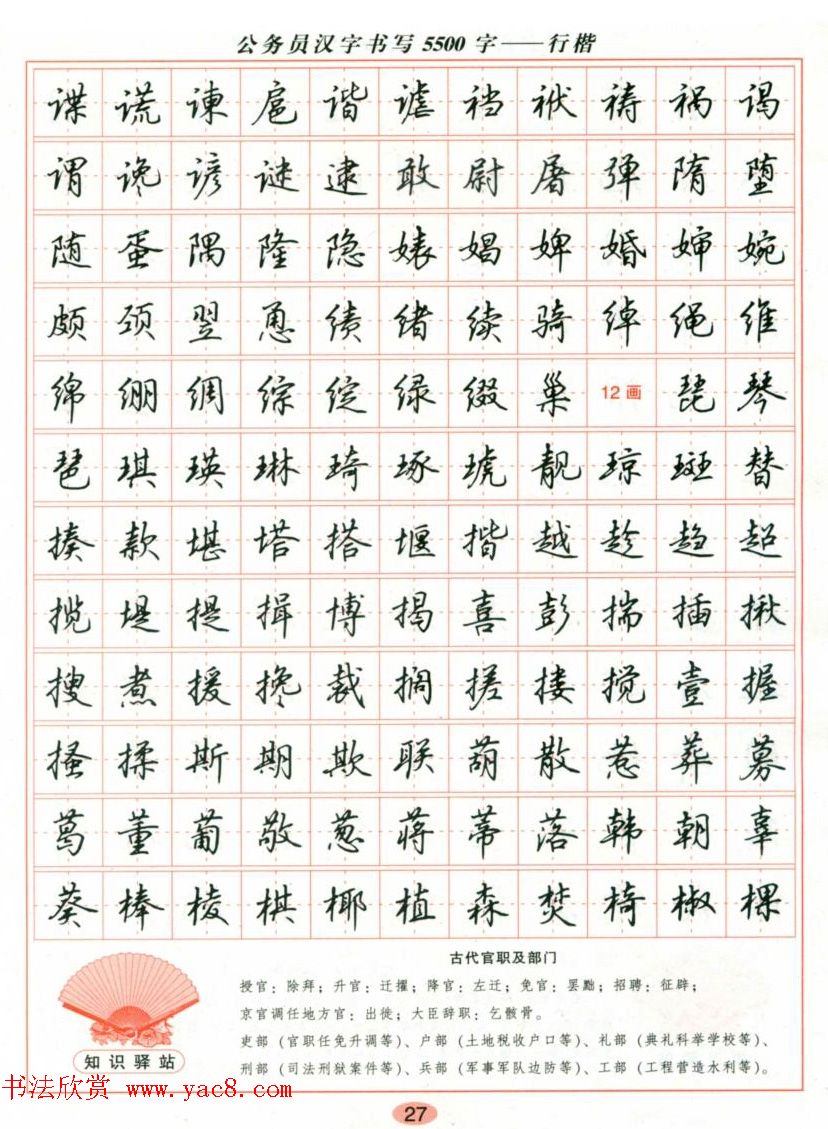 公务员汉字书写5500字——行楷
谍谎谏扈谐谑裆袱祷祸谒
谓谗谚谜逮敢尉屠弹隋堕
随蛋隅隆隐婊娼婢婚婶婉
颇颈翌恿绩绪续骑绰绳维
绵绷绸综绽绿缀巢12画琵琴
琶琪瑛琳琦琢琥靓琼斑替
揍款堪塔搭堰揩越趁趋超
揽堤提揖博揭喜彭揣插揪
搜煮援搀裁搁搓搂搅壹握
搔揉斯期欺联葫散惹葬募
葛董葡敬葱蒋蒂落韩朝辜
葵棒棱棋椰植森焚椅椒棵
古代官职及部门
授官：除拜；升官：迁擢；降官：左迁；免官：罢黜；招聘：征辟；
京官调任地方官：出徙；大臣辞职：乞骸骨。
吏部（官职任免升调等）、户部（土地税收户口等）、礼部（典礼科举学校等）、
刑部（司法刑狱案件等）、兵部（军事军队边防等）、工部（工程营造水利等）。
知识驿站
书法欣赏 www.yac8.com
27